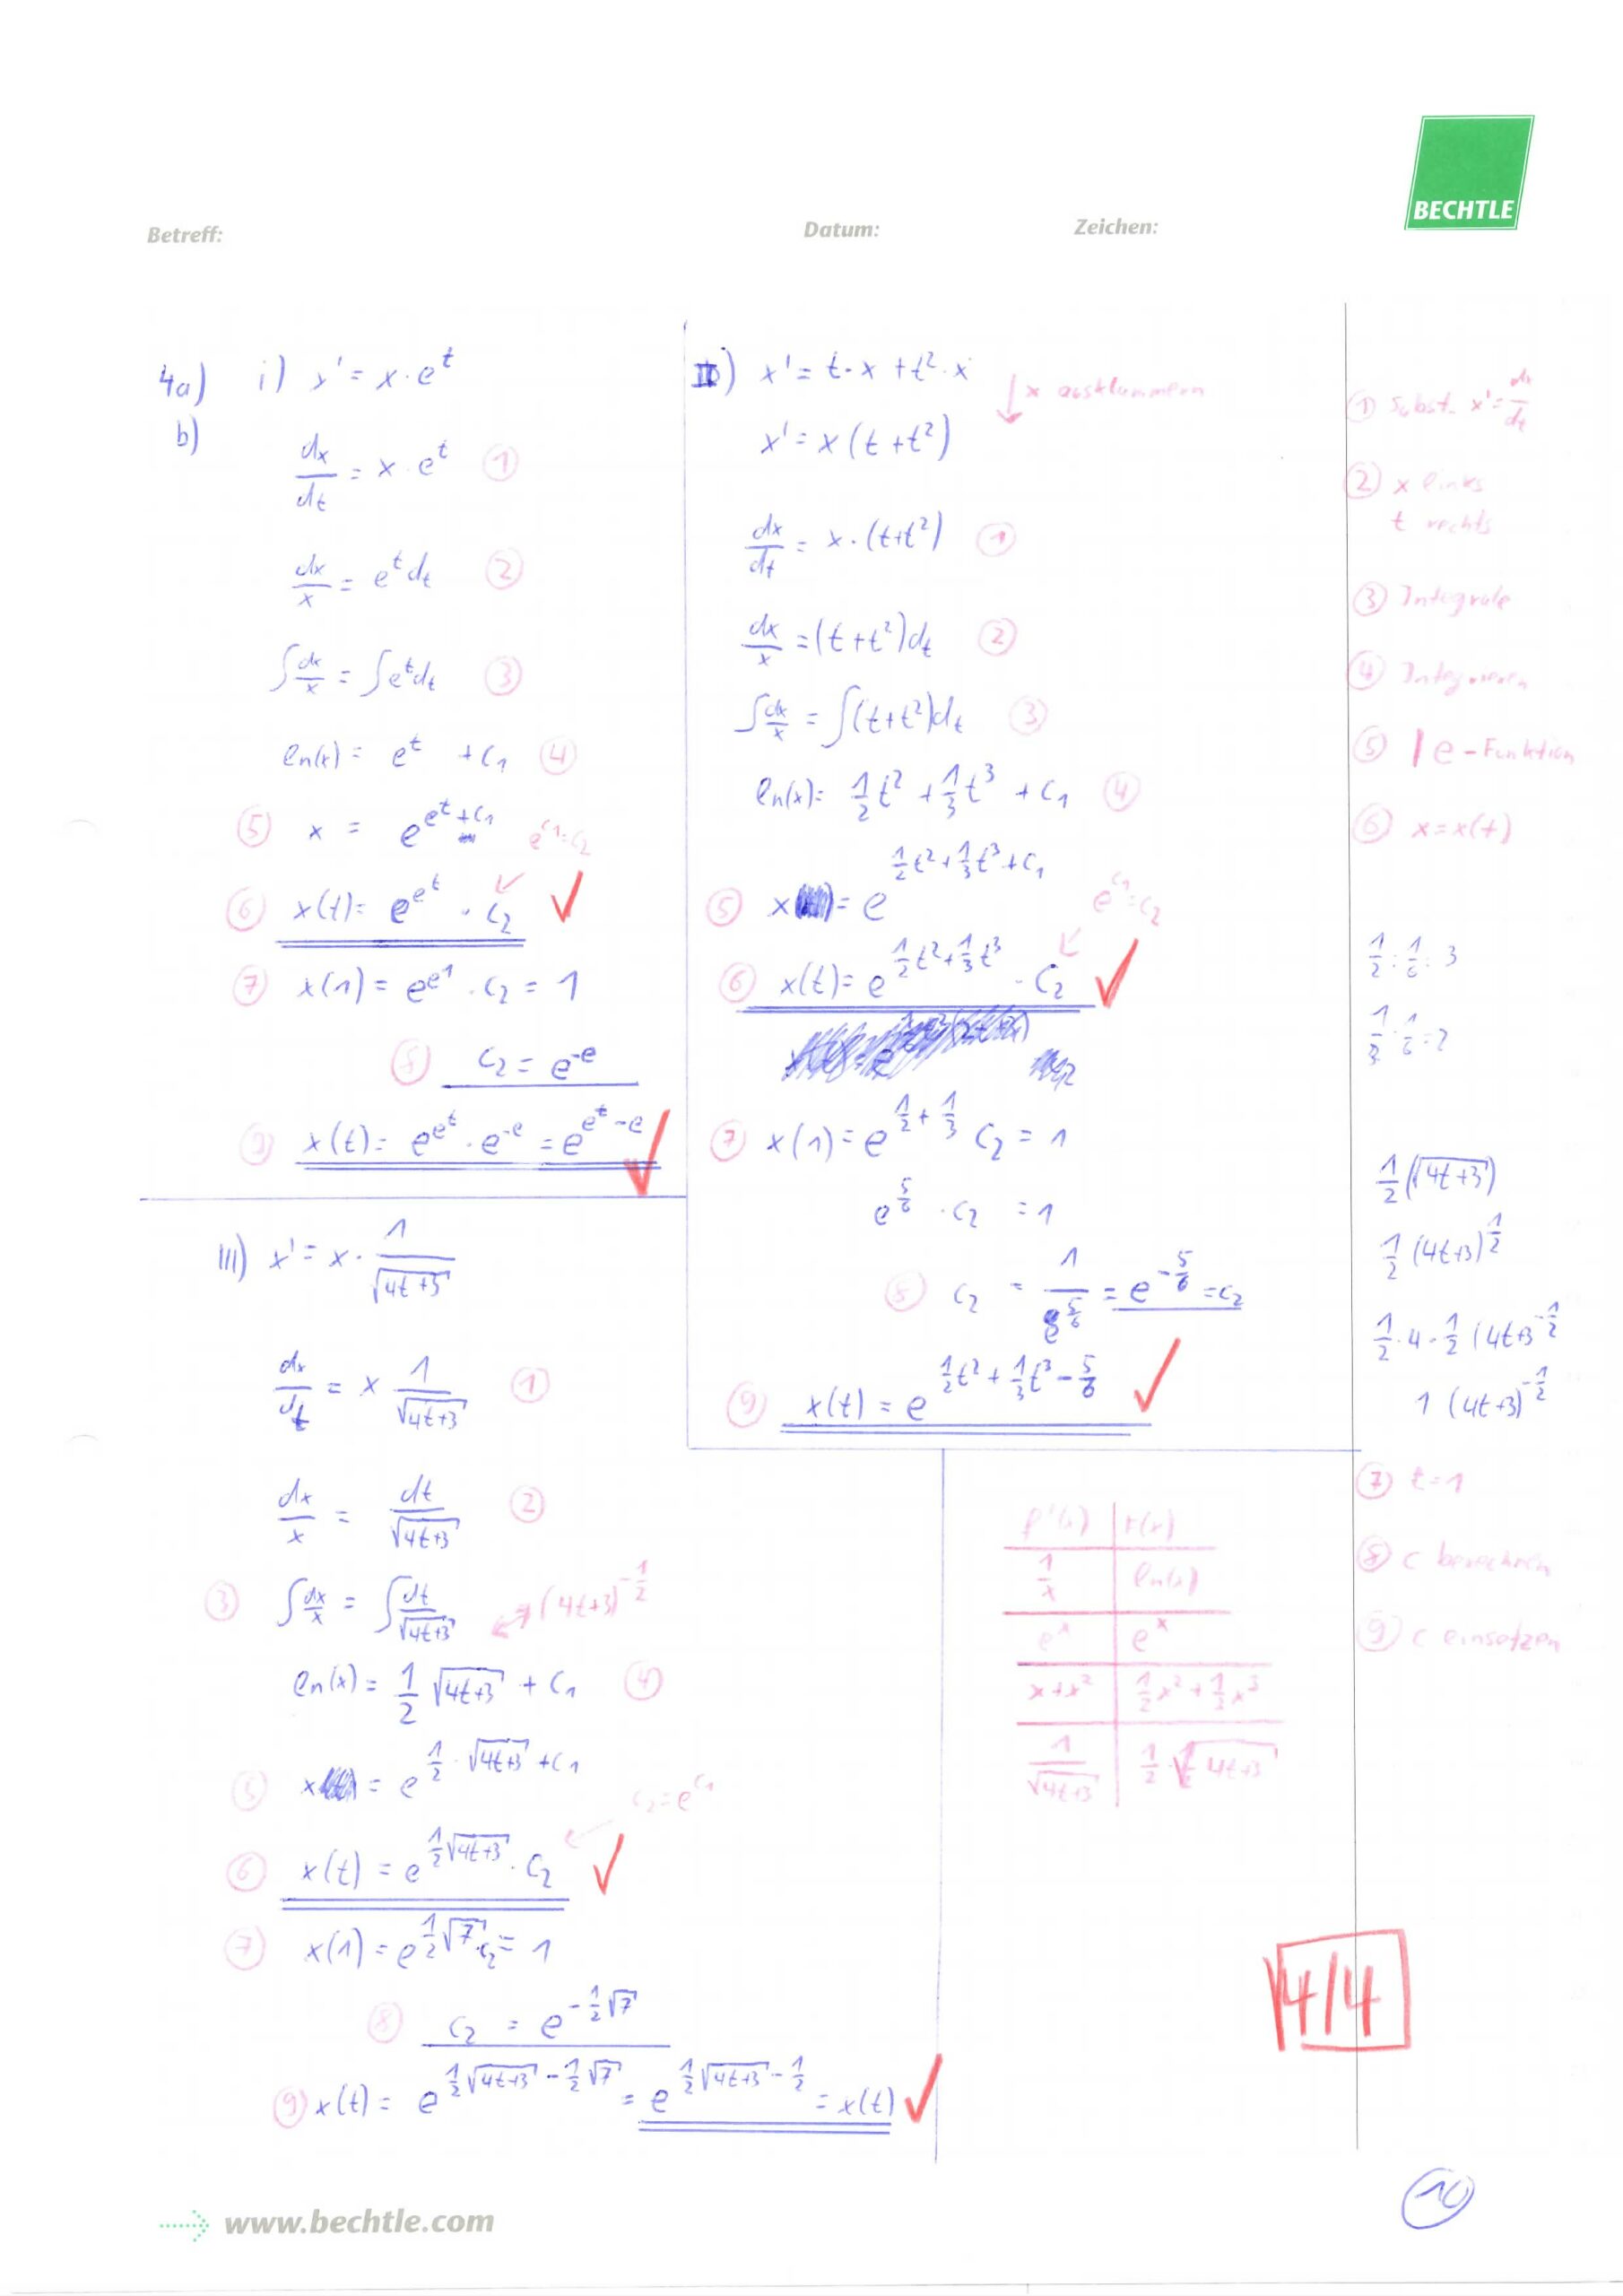 BECHTLE
Betreff:
Datum:
Zeichen:
4a) i) x' = x · e^t
b)
dx/dt = x · e^t ①
dx/x = e^t dt ②
∫ dx/x = ∫ e^t dt ③
ln(x) = e^t + c₁ ④
⑤ x = e^(e^t + c₁) e^c₁ = c₂
⑥ x(t) = e^(e^t) · c₂ ✓
⑦ x(1) = e^(e^1) · c₂ = 1
⑧ c₂ = e^(-e)
⑨ x(t) = e^(e^t) · e^(-e) = e^(e^t - e) ✓
II) x' = t · x + t² · x
↓ x ausklammern
x' = x (t + t²)
dx/dt = x · (t+t²) ①
dx/x = (t + t²) dt ②
∫ dx/x = ∫ (t+t²) dt ③
ln(x) = 1/2 t² + 1/3 t³ + c₁ ④
⑤ x = e^(1/2 t² + 1/3 t³ + c₁)
e^c₁ = c₂
⑥ x(t) = e^(1/2 t² + 1/3 t³) · c₂ ✓
⑦ x(1) = e^(1/2 + 1/3) c₂ = 1
e^(5/6) · c₂ = 1
⑧ c₂ = 1/e^(5/6) = e^(-5/6) = c₂
⑨ x(t) = e^(1/2 t² + 1/3 t³ - 5/6) ✓
III) x' = x · 1/√(4t+3)
dx/dt = x 1/√(4t+3) ①
dx/x = dt/√(4t+3) ②
③ ∫ dx/x = ∫ dt/√(4t+3) (4t+3)^(-1/2)
ln(x) = 1/2 √(4t+3) + c₁ ④
⑤ x = e^(1/2 · √(4t+3) + c₁)
c₂ = e^c₁
⑥ x(t) = e^(1/2 √(4t+3)) · c₂ ✓
⑦ x(1) = e^(1/2 √7) · c₂ = 1
⑧ c₂ = e^(-1/2 √7)
⑨ x(t) = e^(1/2 √(4t+3) - 1/2 √7) = e^(1/2 √(4t+3) - 1/2) = x(t) ✓
F'(x) | F(x)
1/x | ln(x)
e^x | e^x
x+x² | 1/2 x² + 1/3 x³
1/√(4t+3) | 1/2 · √(4t+3)
① Subst. x' = dx/dt
② x links
t rechts
③ Integrale
④ Integrieren
⑤ | e-Funktion
⑥ x = x(t)
1/2 : 1/6 = 3
1/3 : 1/6 = 2
1/2 (√(4t+3))
1/2 (4t+3)^(1/2)
1/2 · 4 · 1/2 (4t+3^(-1/2)
1 (4t+3)^(-1/2)
⑦ t = 1
⑧ c berechnen
⑨ c einsetzen
√4/4
www.bechtle.com
10